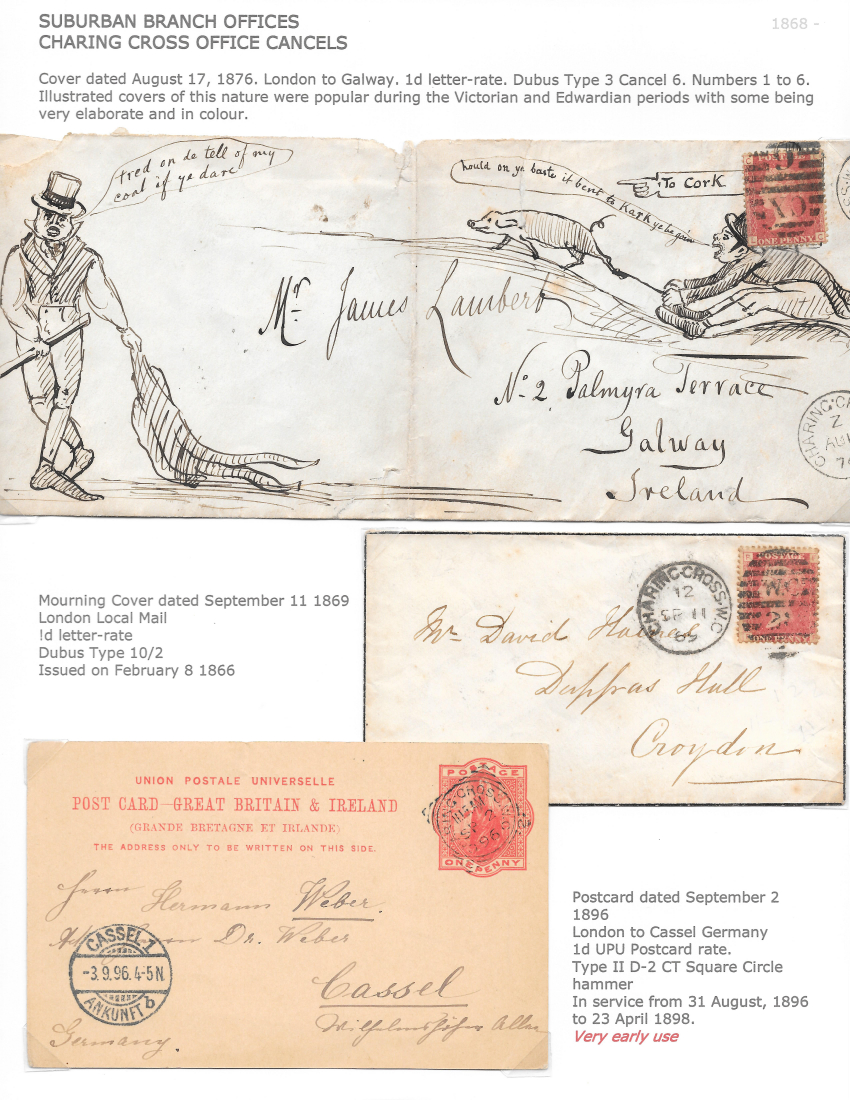 SUBURBAN BRANCH OFFICES
1868 -
CHARING CROSS OFFICE CANCELS
Cover dated August 17, 1876. London to Galway. 1d letter-rate. Dubus Type 3 Cancel 6. Numbers 1 to 6.
Illustrated covers of this nature were popular during the Victorian and Edwardian periods with some being
very elaborate and in colour.
tred on de tell of my
coat if ye dare
hould on ye baste it bent to Kark ye begorra
To Cork
ONE PENNY
Mr James Lambert
No. 2 Palmyra Terrace
Galway
Ireland
CHARING·C
Z
AU
Mourning Cover dated September 11 1869
London Local Mail
!d letter-rate
Dubus Type 10/2
Issued on February 8 1866
CHARING-CROSS·W.C
12
SP 11
69
POSTAGE
WC
2
ONE PENNY
Mr David
Hall
Croydon
UNION POSTALE UNIVERSELLE
POST CARD—GREAT BRITAIN & IRELAND
(GRANDE BRETAGNE ET IRLANDE)
THE ADDRESS ONLY TO BE WRITTEN ON THIS SIDE.
POSTAGE
ONE PENNY
RING·CROSS
SP 2
96
Herrn Hermann Weber
Dr. Weber
Cassel
Wilhelmshöher Allee
Germany.
CASSEL·1
-3.9.96.4-5N
ANKUNFT
Postcard dated September 2
1896
London to Cassel Germany
1d UPU Postcard rate.
Type II D-2 CT Square Circle
hammer
In service from 31 August, 1896
to 23 April 1898.
Very early use